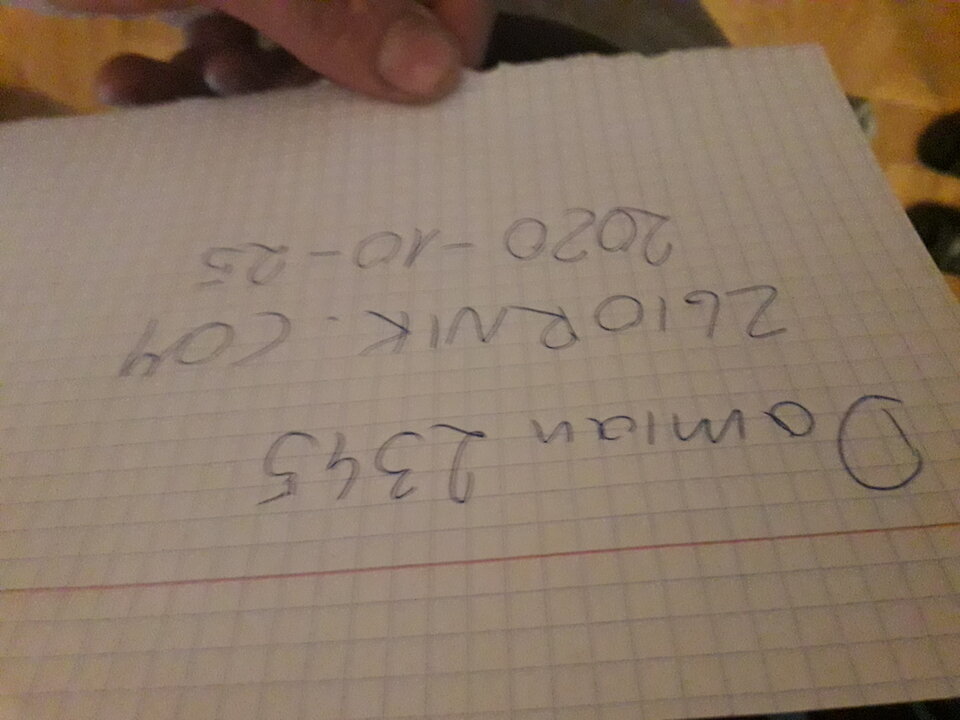 Damian 2345
ZbIORNIK.COM
2020-10-25